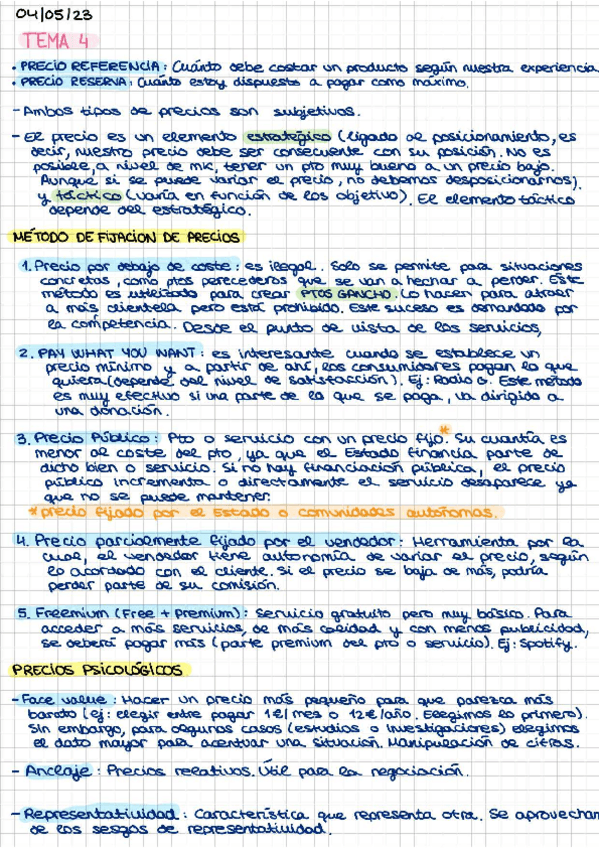 04/05/23
TEMA 4
• PRECIO REFERENCIA: Cuánto debe costar un producto según nuestra experiencia
• PRECIO RESERVA: Cuánto estoy dispuesto a pagar como máximo.
- Ambos tipos de precios son subjetivos.
- El precio es un elemento estratégico (ligado al posicionamiento, es
decir, nuestro precio debe ser consecuente con su posición. No es
posible, a nivel de mk, tener un pto muy bueno a un precio bajo.
Aunque si se puede variar el precio, no debemos desposicionarnos)
y táctico (varía en función de los objetivo). El elemento táctico
depende del estratégico.
MÉTODO DE FIJACIÓN DE PRECIOS
1. Precio por debajo de coste: es ilegal. Solo se permite para situaciones
concretas, como ptos perecederos que se van a hechar a perder. Este
método es utilizado para crear PTOS GANCHO. Lo hacen para atraer
a más clientela pero está prohibido. Este suceso es demandado por
la competencia. Desde el punto de vista de los servicios,
2. PAY WHAT YOU WANT: es interesante cuando se establece un
precio mínimo y a partir de ahí, los consumidores pagan lo que
quiera (depende del nivel de satisfacción). Ej: Radio G. Este método
es muy efectivo si una parte de lo que se paga, va dirigido a
una donación.
3. Precio Público: Pto o servicio con un precio fijo.* Su cuantía es
menor al coste del pto, ya que el Estado financia parte de
dicho bien o servicio. Si no hay financiación pública, el precio
público incrementa o directamente el servicio desaparece ya
que no se puede mantener.
* precio fijado por el Estado o comunidades autónomas.
4. Precio parcialmente fijado por el vendedor: Herramienta por la
cual, el vendedor tiene autonomía de variar el precio, según
lo acordado con el cliente. Si el precio se baja de más, podría
perder parte de su comisión.
5. Freemium (Free + premium): Servicio gratuito pero muy básico. Para
acceder a más servicios, de más calidad y con menos publicidad,
se deberá pagar más (parte premium del pto o servicio). Ej: Spotify.
PRECIOS PSICOLÓGICOS
- Face value: Hacer un precio más pequeño para que parezca más
barato (ej: elegir entre pagar 1€/mes o 12€/año. Elegimos lo primero).
Sin embargo, para algunos casos (estudios o investigaciones) elegimos
el dato mayor para acentuar una situación. Manipulación de cifras.
- Anclaje: Precios relativos. Útil para la negociación.
- Representatividad: Característica que representa otra. Se aprovechan
de los sesgos de representatividad.